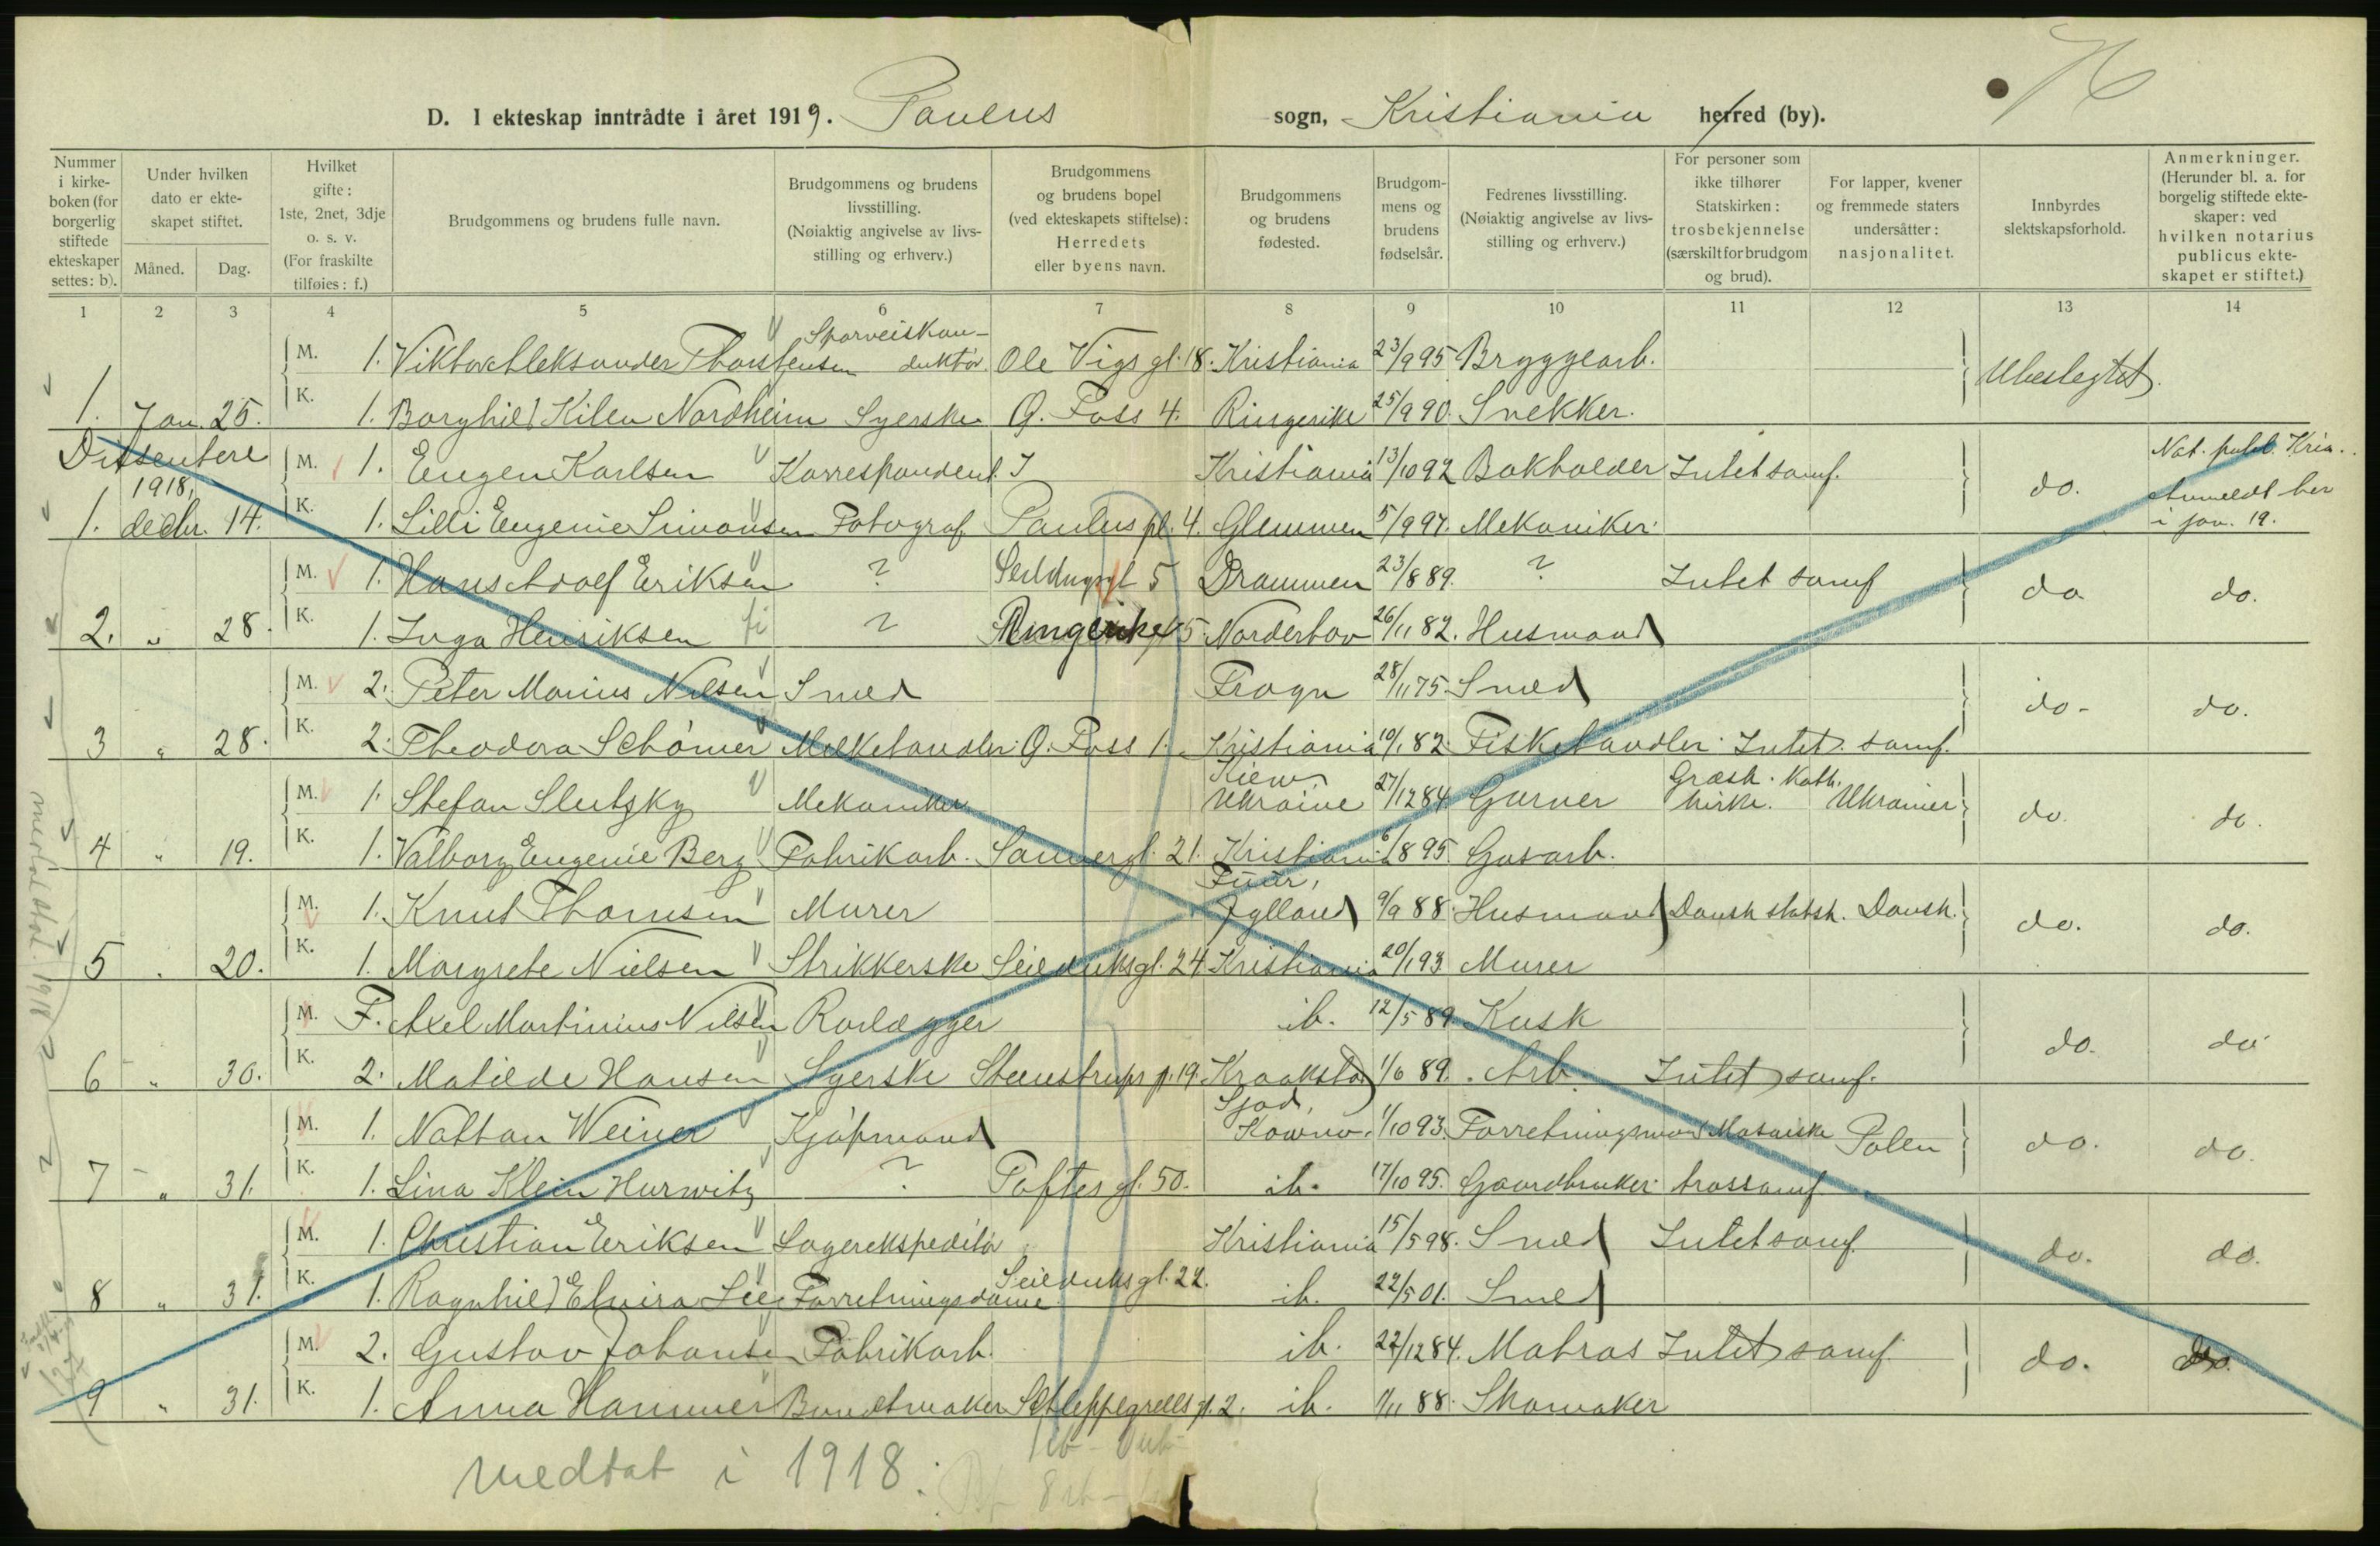 D. I ekteskap inntrådte i året 1919. Paulus sogn, Kristiania herred (by).
Nummer i kirkeboken (for borgerlig stiftede ekteskaper settes: b).
Under hvilken dato er ekteskapet stiftet.
Måned.
Dag.
Hvilket gifte: 1ste, 2net, 3dje o. s. v. (For fraskilte tilføies: f.)
Brudgommens og brudens fulle navn.
Brudgommens og brudens livsstilling. (Nøiaktig angivelse av livsstilling og erhverv.)
Brudgommens og brudens bopel (ved ekteskapets stiftelse): Herredets eller byens navn.
Brudgommens og brudens fødested.
Brudgommens og brudens fødselsår.
Fedrenes livsstilling. (Nøiaktig angivelse av livsstilling og erhverv.)
For personer som ikke tilhører Statskirken: trosbekjennelse (særskilt for brudgom og brud).
For lapper, kvener og fremmede staters undersåtter: nasjonalitet.
Innbyrdes slektskapsforhold.
Anmerkninger. (Herunder bl. a. for borgelig stiftede ekteskaper: ved hvilken notarius publicus ekteskapet er stiftet.)
1 2 3 4 5 6 7 8 9 10 11 12 13 14
M. 1. Viktor Aleksander Thorstensen Sporveiskonduktör. Ole Vigs gt. 18. Kristiania 23/9 95 Bryggearb. Ubeslegtet.
1. Jan. 25. K. 1. Borghild Kilen Nordheim Syerske G. Foss 4. Ringerike 25/9 90. Snekker.
Dissentere M. 1. Eugen Karlsen Korrespondent. Kristiania 13/10 92 Bokholder Intet samf. do. Not. publ. Kria.
1918,
1. decbr. 14. K. 1. Lilli Eugenie Simonsen Fotograf Paulus pl. 4. Glemmen 5/9 97. Mekaniker. Anmeldt her i jan. 19.
M. 1. Hans Adolf Eriksen ? 5 Drammen 23/8 89. ? Intet samf do. do.
2. " 28. K. 1. Inga Henriksen ? Ringerike 5 Norderhov 26/11 82. Husmand
M. 2. Peter Marius Nilsen Smed Frogn 28/11 75. Smed do. do.
3 " 28. K. 2. Theodora Schömer Melkehandler. G. Foss 1. Kristiania 10/1 82 Fiskehandler. Intet samf.
M. 1. Stefan Slutzky Mekaniker Kiew Ukraine 27/12 84. Garver Græsk. kath. kirke. Ukrainer do. do.
4 " 19. K. 1. Valborg Eugenie Berg Fabrikarb. Sannergt. 21. Kristiania 6/8 95. Gasarb.
M. 1. Knut Thomsen Murer Fuur, Jylland 9/9 88. Husmand Dansk statsk. Dansk. do. do.
5 " 20. K. 1. Margrete Nielsen Strikkerske Seilduksgt. 24 Kristiania 20/1 93 Murer
M. F. Axel Martinius Nilsen Rorlægger ib. 12/5 89. Kusk do. do.
6 " 30. K. 2. Matilde Hansen Syerske Steenstrups g. 19. Kraakstad 1/6 89. Arb. Intet samf.
M. 1. Nathan Weiner Kjöpmand Kowno. 1/10 93. Forretningsmand Mosaiske Polen do. do.
7 " 31. K. 1. Lina Klein Hurwitz ? Toftes gt. 50. ib. 17/10 95. Gaardbruker. trossamf.
M. 1. Christian Eriksen Lagerekspeditör Kristiania 15/5 98. Smed Intet samf. do. do.
8 " 31. K. 1. Ragnhild Elvira Lie Forretningsdame Seilduksgt. 22. ib. 22/5 01. Smed
M. 2. Gustav Johansen Fabrikarb. ib. 22/12 84. Matros Intet samf. do. do.
9 " 31. K. 1. Anna Hammer Bundtmaker Schleppegrells gt. 2. ib. 1/11 88. Skomaker
medtat i 1918.